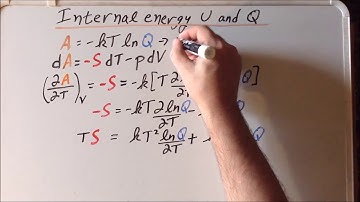 Internal energy U and Q
A = -kT ln Q →
dA = -S dT - p dV
(∂A/∂T)_V = -S = -k[T ∂ Q]
-S = -kT ∂lnQ/∂T - Q
TS = kT² lnQ/∂T + Q